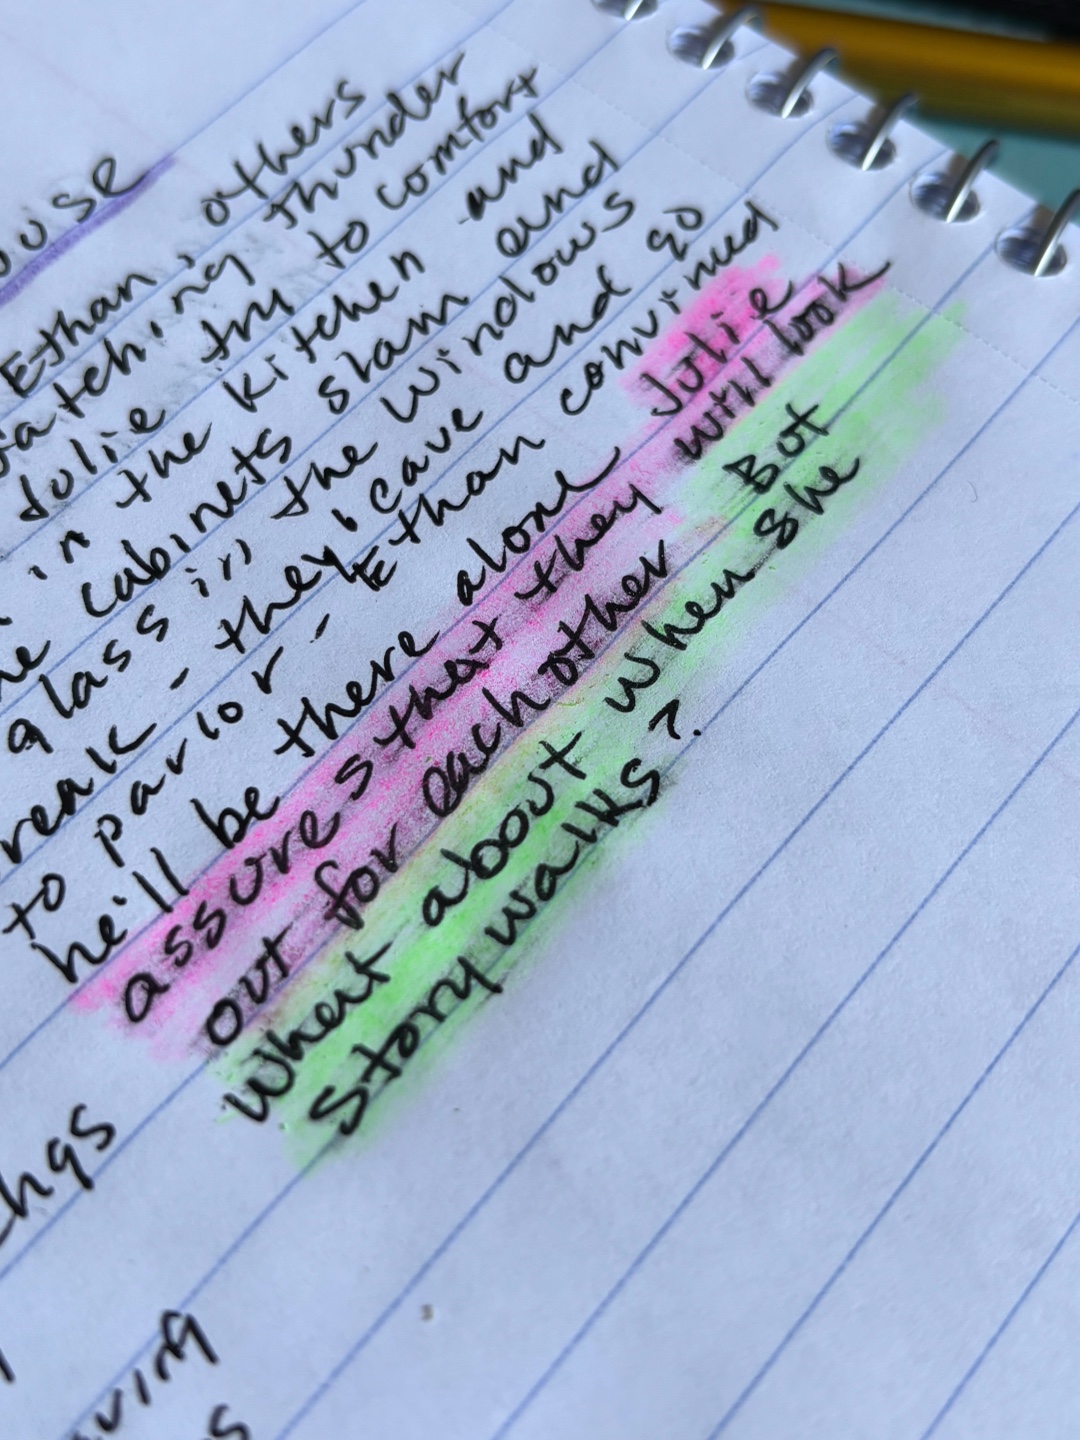 ouse
Ethan, others
atching thunder
Julie try to comfort
in the kitchen and
cabinets slam and
glass in the windows
reak - they leave and go
to parlor - Ethan convinced
he'll be there alone Julie
assures that they will look
out for each other But
What about when she
story walks?